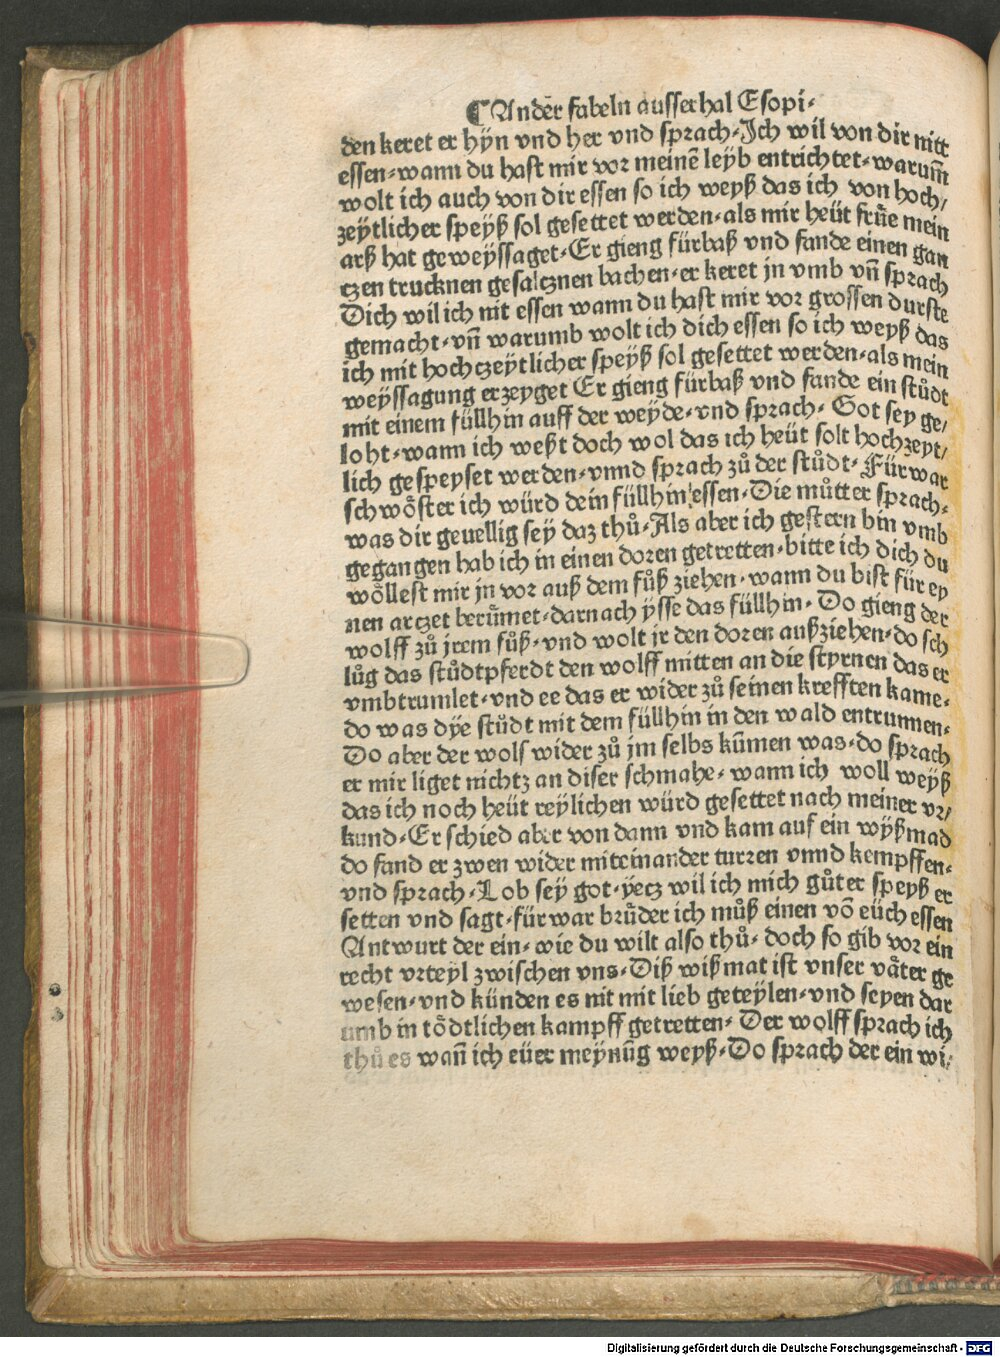 ¶Ander fabeln aussethal Esopi⸗
den keret er hÿn vnd her vnd sprach⸗Ich wil von dir nitt
essen⸗wann du hast mir vor meinē leyb entrichtet⸗warum̄
wolt ich auch von dir essen so ich weyß das ich von hoch/
zeÿtlicher speyß sol gesettet werden⸗als mir heüt frūe mein
arß hat geweÿssaget⸗Er gieng fürbaß vnd fande einen gan
czen trucknen gesalcznen bachen⸗er keret jn vmb vn̄ sprach
Dich wil ich nit essen wann du hast mir vor grossen durste
gemacht⸗vn̄ warumb wolt ich dich essen so ich weyß das
ich mit hochczeÿtlicher speÿß sol gesettet werden⸗als mein
weÿssagung erzeyget Er gieng fürbaß vnd fande ein stůdt
mit einem füllhin auff der weyde⸗vnd sprach⸗ Got sey ge/
loht⸗wann ich weßt doch wol das ich heüt solt hochzeyt/
lich gespeyset werden⸗vnnd sprach zů der stůdt⸗Fürwar
schwöster ich würd dein füllhin essen⸗Die můtter sprach⸗
was dir geuellig sey daz thů⸗Als aber ich gestern bin vmb
gegangen hab ich in einen doren getretten⸗bitte ich dich du
wöllest mir jn vor auß dem fůß ziehen⸗wann du bist für ey
nen arczet berümet⸗darnach ÿsse das füllhin⸗ Do gieng der
wolff zů jrem fůß⸗vnd wolt jr den doren außziehen⸗do sch
lůg das stůdtpferdt den wolff mitten an die styrnen das er
vmbtrumlet⸗vnd ee das er wider zů seinen krefften kame⸗
do was dÿe stůdt mit dem füllhin in den wald entrunnen⸗
Do aber der wolf wider zů jm selbs kūmen was⸗do sprach
er mir liget nichtz an diser schmahe⸗wann ich woll weyß
das ich noch heüt reÿlichen würd gesettet nach meiner vr/
kund⸗Er schied aber von dann vnd kam auf ein wÿßmad
do fand er zwen wider miteinander turren vnnd kempffen⸗
vnd sprach⸗Lob sey got⸗ÿecz wil ich mich gůter speyß er
setten vnd sagt⸗fürwar brüder ich můß einen vō eüch essen
Antwurt der ein⸗wie du wilt also thů⸗ doch so gib vor ein
recht vrteyl zwischen vns⸗Diß wißmat ist vnser väter ge
wesen⸗vnd künden es nit mit lieb geteÿlen⸗vnd seyen dar
umb in tödtlichen kampff getretten⸗ Der wolff sprach ich
thů es wan̄ ich eüer meynūg weyß⸗Do sprach der ein wi/
Digitalisierung gefördert durch die Deutsche Forschungsgemeinschaft - DFG